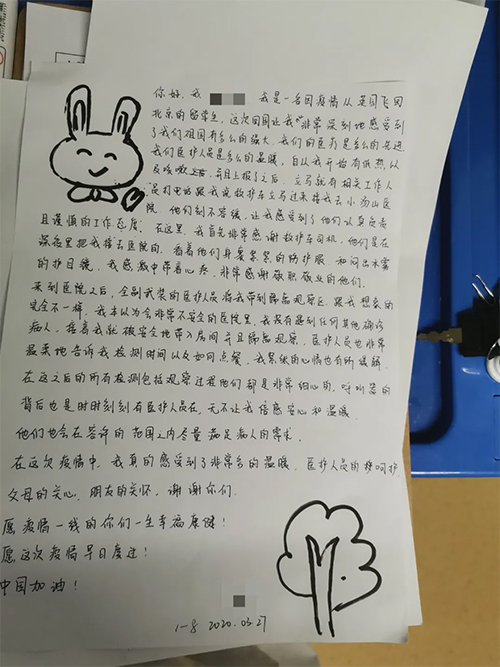 你好，我 我是一名因疫情从英国飞回
北京的留学生，这次回国让我非常深刻地感受到
了我们祖国有多么的强大，我们的医疗是多么的先进
我们医护人员是多么的温暖，自从我开始有低热以
及咳嗽之后，并且上报了之后，立马就有相关工作人
员打电话跟我说救护车立马过来接我去小汤山医
院，他们刻不容缓，让我感受到了他们认真负责
且谨慎的工作态度，在这里，我首先非常感谢救护车司机，他们是在
深夜里把我接去医院的，看着他们身裹紧紧的防护服和闷出水雾
的护目镜，我感激中带着心疼，非常感谢敬职敬业的他们，
来到医院之后，全副武装的医护人员将我带到隔离观察区，跟我想象的
完全不一样，我本以为会非常不安全的医院里，我没有遇到任何其他确诊
病人，接着我就被安全地带入房间并且隔离观察，医护人员也非常
温柔地告诉我检测时间以及如何点餐，我紧张的心情也有所缓解，
在这之后的所有检测包括观察过程他们都是非常细心的，呼叫器的
背后也是时时刻刻有医护人员在，无不让我倍感安心和温暖
他们也会在容许的范围之内尽量满足病人的需求，
在这次疫情中，我真的感受到了非常多的温暖，医护人员的呵护，
父母的关心，朋友的关怀，谢谢你们，
愿疫情一线的你们一生幸福康健！
愿这次疫情早日度过！
中国加油！
2020.03.27